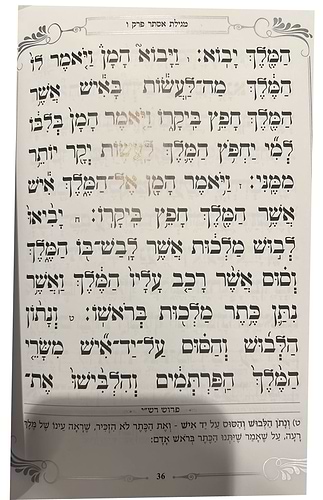 מגילת אסתר פרק ו
הַמֶּלֶךְ יָבוֹא: ו וַיָּבוֹא הָמָן וַיֹּאמֶר לוֹ
הַמֶּלֶךְ מַה־לַּעֲשׂוֹת בָּאִישׁ אֲשֶׁר
הַמֶּלֶךְ חָפֵץ בִּיקָרוֹ וַיֹּאמֶר הָמָן בְּלִבּוֹ
לְמִי יַחְפֹּץ הַמֶּלֶךְ לַעֲשׂוֹת יְקָר יוֹתֵר
מִמֶּנִּי: ז וַיֹּאמֶר הָמָן אֶל־הַמֶּלֶךְ אִישׁ
אֲשֶׁר הַמֶּלֶךְ חָפֵץ בִּיקָרוֹ: ח יָבִיאוּ
לְבוּשׁ מַלְכוּת אֲשֶׁר לָבַשׁ־בּוֹ הַמֶּלֶךְ
וְסוּס אֲשֶׁר רָכַב עָלָיו הַמֶּלֶךְ וַאֲשֶׁר
נִתַּן כֶּתֶר מַלְכוּת בְּרֹאשׁוֹ: ט וְנָתוֹן
הַלְּבוּשׁ וְהַסּוּס עַל־יַד־אִישׁ מִשָּׂרֵי
הַמֶּלֶךְ הַפַּרְתְּמִים וְהִלְבִּישׁוּ אֶת־
פירוש רש״י
ט) וְנָתוֹן הַלְּבוּשׁ וְהַסּוּס עַל יַד אִישׁ - וְאֶת הַכֶּתֶר לֹא הִזְכִּיר, שֶׁרָאָה עֵינוֹ שֶׁל מֶלֶךְ
רָעָה, עַל שֶׁאָמַר שֶׁיִּתְּנוּ הַכֶּתֶר בְּרֹאשׁ אָדָם:
36